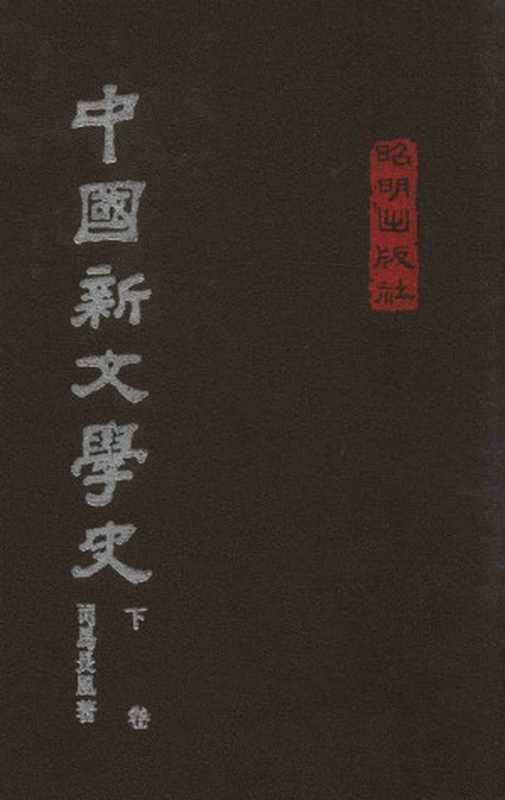 昭明出版社
中國新文學史
下卷
司馬長風著